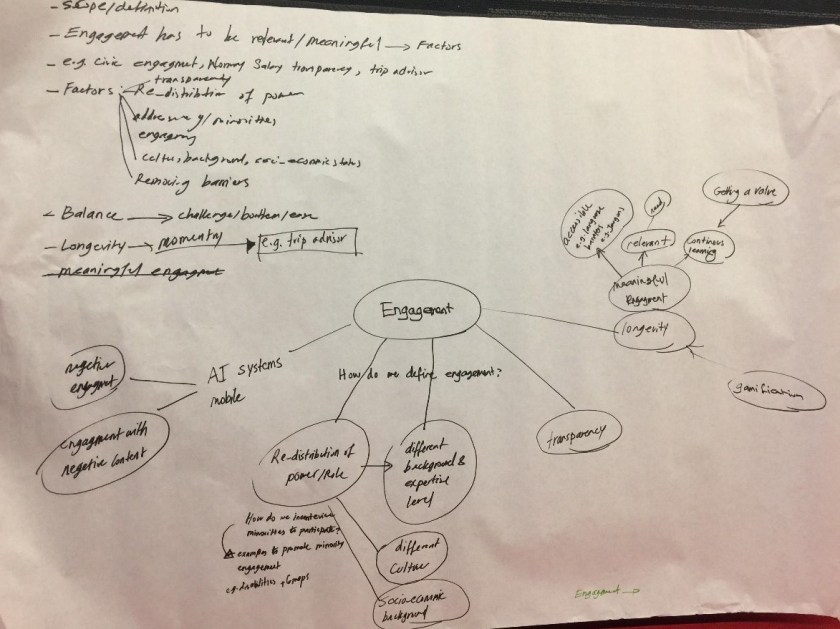 - Scope/definition
- Engagement has to be relevant/meaningful → Factors
- e.g. civic engagment, Norway Salary transparency, trip advisor
transparency
- Factors: Re-distribution of power
minorities
engaging
background, soci-economic status
Removing barriers
- Balance → challenge/ /ease
- Longevity → momentry → e.g. trip advisor
meaningful engagment
Getting a value
need
accessible
e.g. language
barriers
e.g. Jargons
relevant
continous
learning
meaningful
Engagment
Engagement
longevity
gamification
negative
engagmt
AI systems
mobile
How do we define engagement?
Engagment with
negative content
Re-distribution of
power/Role
different
background &
expertise
level
transparency
How do we incentivize
minorities to participate?
examples to promote minority
engagement
e.g. disabilities +
different
culture
Socioeconomic
background
Engagment →